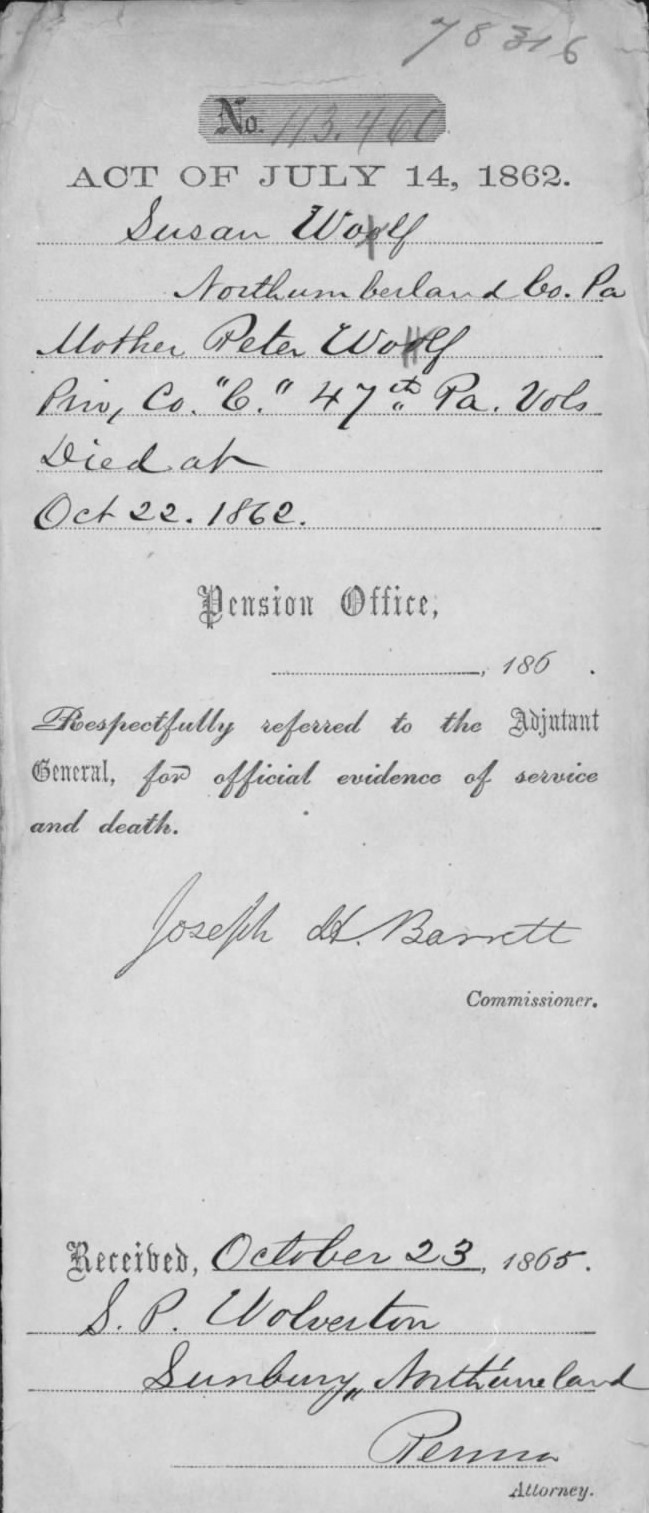 78316
No. 113.460
ACT OF JULY 14, 1862.
Susan Woolf
Northumberland Co. Pa
Mother Peter Woolf
Priv, Co. "C." 47th Pa. Vols
Died at
Oct 22. 1862.
Pension Office,
, 186 .
Respectfully referred to the Adjutant
General, for official evidence of service
and death.
Joseph H. Barrett
Commissioner.
Received, October 23, 1865.
S. P. Wolverton
Sunbury,
Penna
Attorney.